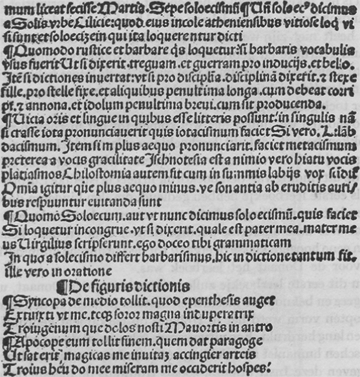 mum liceat secisse Martis. Sepe soloecismũ ¶ Uñ solo ec⁹ dicimus
a Solis vrbe Cilicie: quod eius incole atheniensibus vitiose loq̃ vi
si sunt et soloecizein qui ita loquerentur dicti
¶ Quomodo rustice et barbare q̃s loquetur? si barbaris vocabulis
vsus fuerit Ut si dixerit. treguam. et guerram pro inducijs. et bello.
Itẽ si dictiones inuertat. vt si pro disciplĩa. disciplinã dixerit. z stexe
fille. pro stelle fixe. et aliquibus penultima longa. cum debeat corri
pi. z annona. et idolum penultima breui. cum sit producenda.
¶ Uicia oris et lingue in quibus esse litteris possunt. in singulis nã
si crasse iota pronunciauerit quis iotacismum faciet Si vero. l. lãb
dacismum. Item si m plus aequo pronunciarit. faciet metacismum
preterea a vocis gracilitate Ischnotesia est a nimio vero hiatu vocis
platiasmos Chilostomia autem fit cum in summis labijs vox
Omĩa igitur que plus aequo minus. ve sonantia ab eruditis auri/
bus respuuntur euitanda sunt
¶ Quomõ Soloecum. aut vt nunc dicimus soloecismũ. quis faciet
Si loquetur incongrue. vt si dixerit. quale est pater mea. mater me
us Uirgilius scripserunt. ego doceo tibi grammaticam
In quo a solecismo differt barbarismus. hic in dictione tantum fit.
ille vero in oratione
¶ De figuris dictionis
¶ Syncopa de medio tollit. quod epenthesis auget
Extinxti vt me. teq̃ soror magna induperatrix
Troiugenum que delos nosti Mauortis in antro
¶ Apocope cum tollit finem. quem dat paragoge
Ut sat erit magicas me inuitaz accingier arteis
Troius heu do mee miseram me occiderit hospes